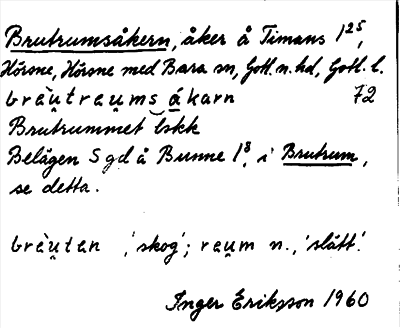 Brutrumsåkern, åker å Timans 1²⁵,
Hörsne, Hörsne med Bara sn, Gotl. n. hd, Gotl. l.
bràu̯trau̯ms‿ákarn 72
Brutrummet lskk
Belägen S gd å Bunne 1⁸, i Brutrum,
se detta.
bràu̯tan, 'skog'; rau̯m n., 'slätt'.
Inger Eriksson 1960